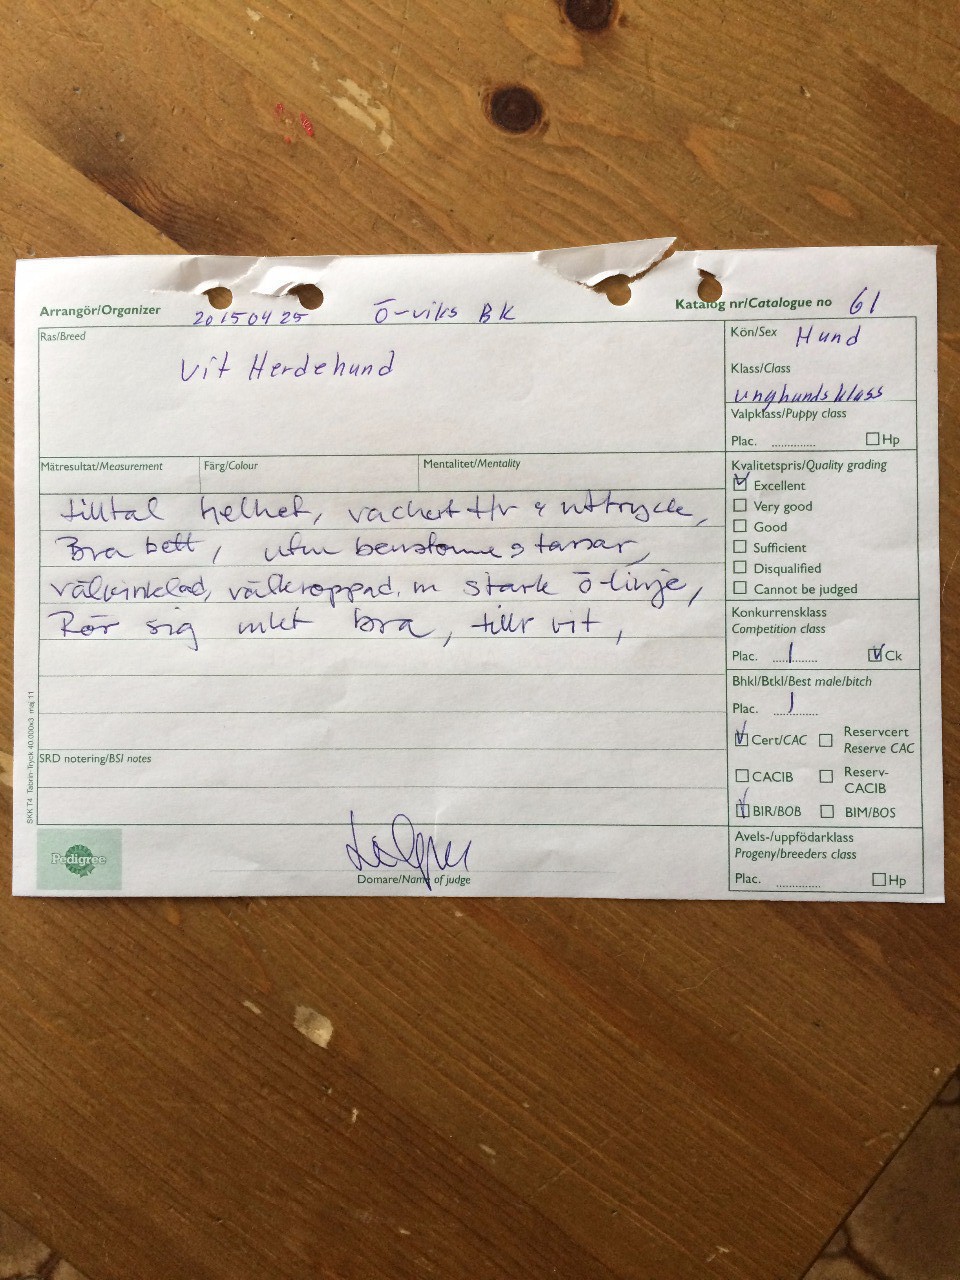 Arrangör/Organizer 20150425 Ö-viks BK Katalog nr/Catalogue no 61
Ras/Breed
Vit Herdehund
Kön/Sex Hund
Klass/Class
unghundsklass
Valpklass/Puppy class
Plac. .............. Hp
Mätresultat/Measurement Färg/Colour Mentalitet/Mentality
tilltal helhet, vackert & uttryck,
Bra bett, utm benstomme tassar,
välvinklad, välkroppad. m stark ö-linje,
Rör sig mkt bra, tillr vit,
Kvalitetspris/Quality grading
Excellent
Very good
Good
Sufficient
Disqualified
Cannot be judged
Konkurrensklass
Competition class
Plac. 1 Ck
Bhkl/Btkl/Best male/bitch
Plac. 1
Cert/CAC Reservcert
Reserve CAC
CACIB Reserv-
CACIB
BIR/BOB BIM/BOS
SRD notering/BSI notes
Avels-/uppfödarklass
Progeny/breeders class
Plac. .............. Hp
Domare/Name of judge
Pedigree
SKK T4 Tabrin-Tryck 40.000x3 maj 11